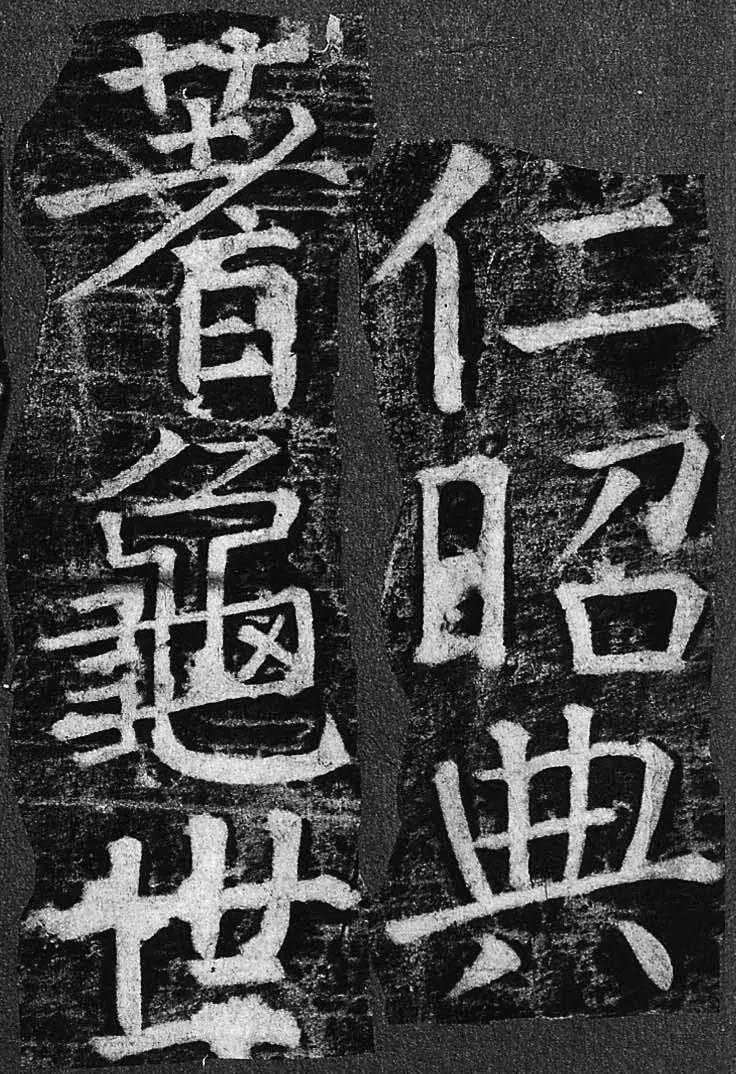 仁昭典
蓍龜世